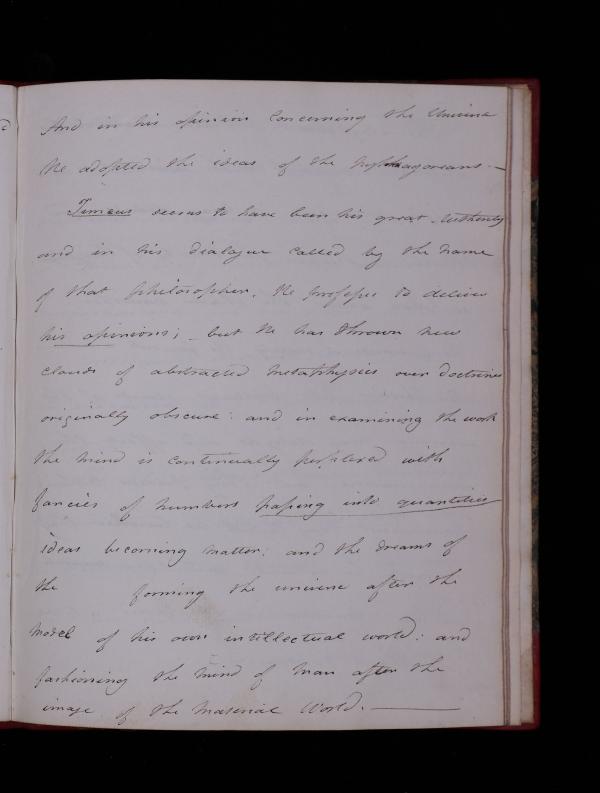 And in his opinion concerning the Universe
He adopted the ideas of the Pythagoreans —
Timeus seems to have been his great Authority
and in his dialogue called by the name
of that philosopher. He professes to deliver
his opinions; - but He has thrown new
clouds of abstracted metaphysics over doctrines
originally obscure: and in examining the work
the mind is continually perplexed with
fancies of numbers passing into quantities
ideas becoming matter: and the dreams of
the forming the universe after the
model of his own intellectual world: and
fashioning the mind of man after the
image of the material World. —